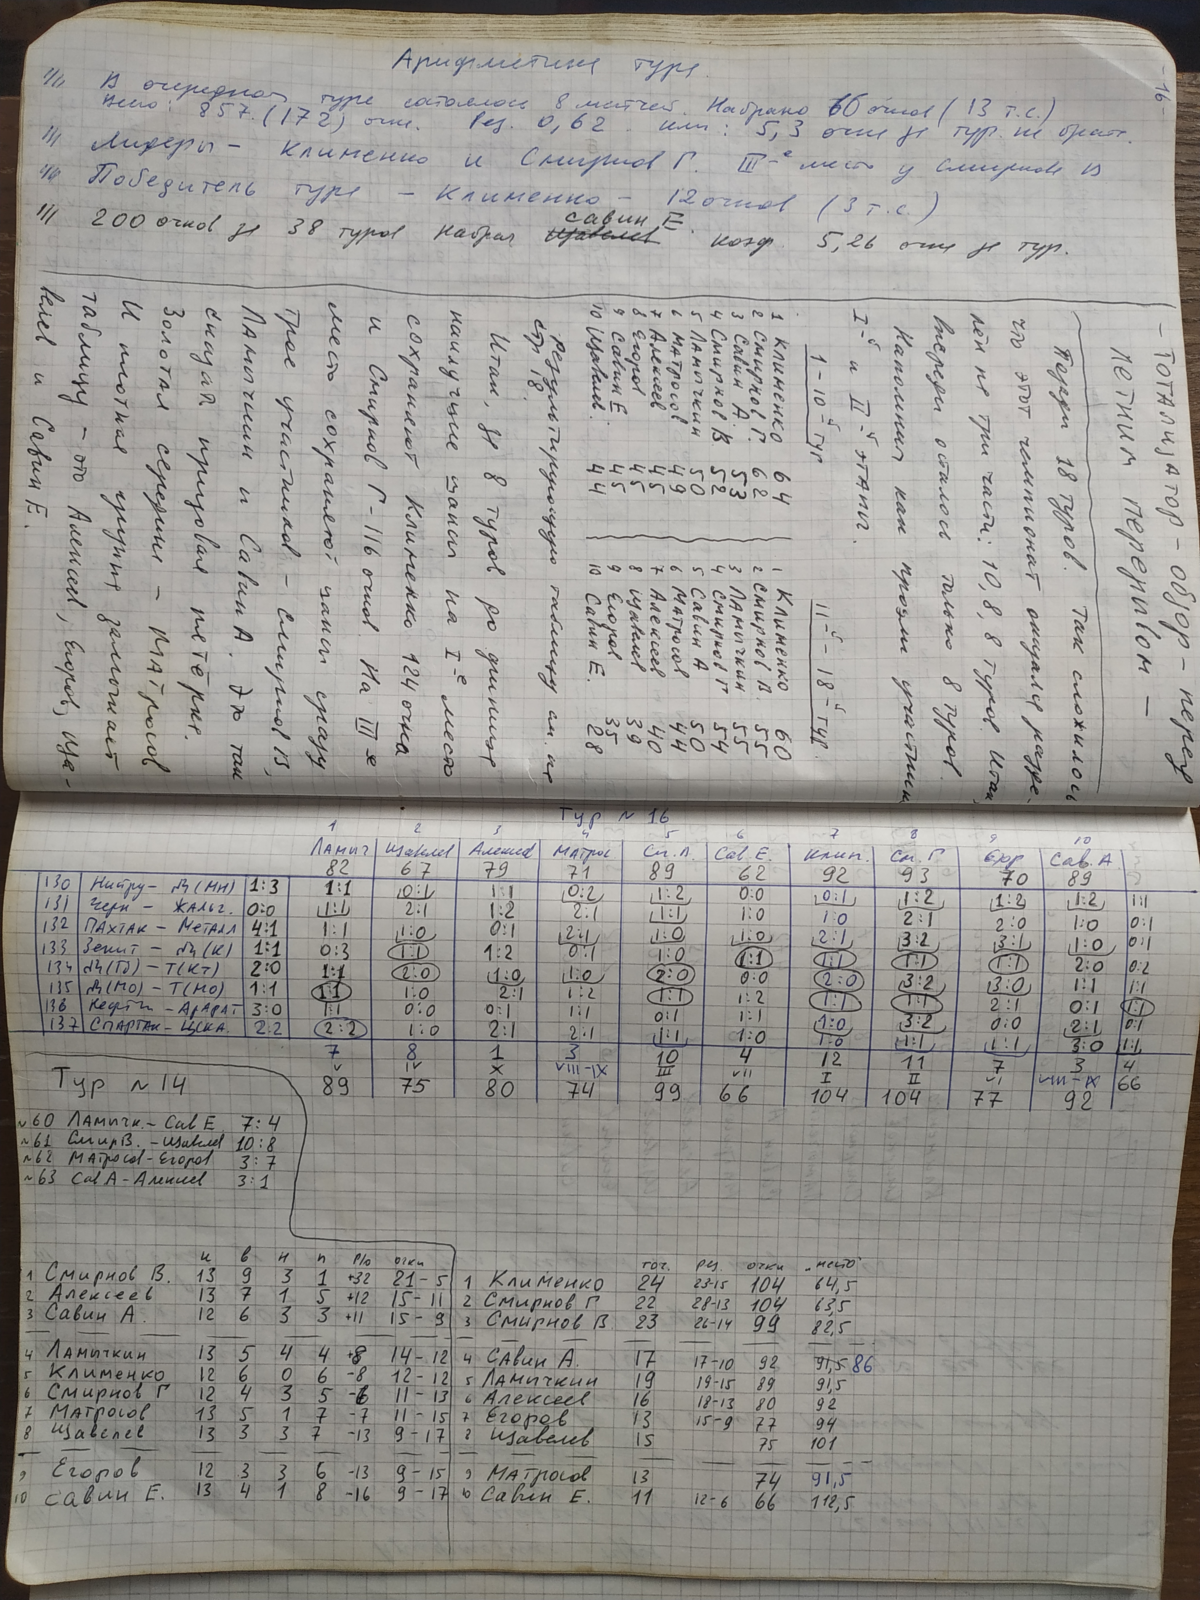 -16-
Арифметика тура.
В очередном туре состоялось 8 матчей. Набрано 60 очков (13 т.с.)
всего: 857 (172) очк. Рез. 0,62 или: 5,3 очк за тур
Лидеры - Клименко и Смирнов Г. III-е место у Смирнова В
Победитель тура - Клименко - 12 очков (3 т.с.)
200 очков за 38 туров набрал Савин Е. коэф. 5,26 очк за тур.
- Тотализатор - обзор - перед
летним перерывом -
Позади 18 туров. Так сложилось
что этот чемпионат оказался разде-
лён на три части: 10, 8, 8 туров. Итак,
впереди осталось только 8 туров.
Напомним как прошли участники
I-й и II-й этапы.
1-10-й тур
11-й - 18-й тур.
1 Клименко 64
2 Смирнов Г. 62
3 Савин А. 53
4 Смирнов В 52
5 Ламычкин 50
6 Матросов 49
7 Алексеев 45
8 Егоров 45
9 Савин Е. 45
10 Щавелев. 44
1 Клименко 60
2 Смирнов В 55
3 Ламычкин 55
4 Смирнов Г 54
5 Савин А 50
6 Матросов 44
7 Алексеев 40
8 Щавелев 39
9 Егоров 35
10 Савин Е. 28
Результирующую таблицу см. на
стр 18.
Итак, за 8 туров до финиша
наилучшие шансы на I-е место
сохраняют Клименко 124 очка
и Смирнов Г - 116 очков. На III-е
место сохраняют шансы сразу
трое участников - Смирнов В,
Ламычкин и Савин А. Это так
сказать призовая пятёрка.
Золотая середина - Матросов
И плотная группа замыкает
таблицу - это Алексеев, Егоров, Ща-
велев и Савин Е.
Тур № 16
1 2 3 4 5 6 7 8 9 10
Ламыч Щавелев Алексеев Матрос См. В. Сав. Е. Клим. См. Г Егор Сав. А
82 67 79 71 89 62 92 93 70 89
130 Нистру - Д(Мн) 1:3 1:1 0:1 1:1 0:2 1:2 0:0 0:1 1:2 1:2 1:2 1:1
131 Черн - Жальг. 0:0 1:1 2:1 1:2 2:1 1:1 1:0 1:0 2:1 2:0 1:0 0:1
132 Пахтак - Металл 4:1 1:1 1:0 0:1 2:1 1:0 1:0 2:1 3:2 3:1 1:0 0:1
133 Зенит - Д(К) 1:1 0:3 1:1 1:2 0:1 1:0 1:1 1:1 1:1 1:1 2:0 0:2
134 Д(Тб) - Т(КТ) 2:0 1:1 2:0 1:0 1:0 2:0 0:0 2:0 3:2 3:0 1:1 1:1
135 Д(Мо) - Т(Мо) 1:1 1:1 1:0 2:1 1:2 1:1 1:2 1:1 1:1 2:1 0:1 1:1
136 Нефтч - Арарат 3:0 1:1 0:0 0:1 1:1 0:1 1:1 1:0 3:2 0:0 2:1 0:1
137 Спартак - ЦСКА. 2:2 2:2 1:0 2:1 2:1 1:1 1:0 1:0 1:1 1:1 3:0 1:1
7 8 1 3 10 4 12 11 7 3 4
V IV X VIII-IX III VII I II VI VIII-IX
89 75 80 74 99 66 104 104 77 92 66
Тур № 14
№60 Ламычк. - Сав Е 7:4
№61 Смир В. - Щавелев 10:8
№62 Матросов - Егоров 3:7
№63 Сав А - Алексеев 3:1
и в н п р/о очки
1 Смирнов В. 13 9 3 1 +32 21-5
2 Алексеев 13 7 1 5 +12 15-11
3 Савин А. 12 6 3 3 +11 15-9
4 Ламычкин 13 5 4 4 +8 14-12
5 Клименко 12 6 0 6 -8 12-12
6 Смирнов Г 12 4 3 5 -6 11-13
7 Матросов 13 5 1 7 -7 11-15
8 Щавелев 13 3 3 7 -13 9-17
9 Егоров 12 3 3 6 -13 9-15
10 Савин Е. 13 4 1 8 -16 9-17
точ. рез. очки место
1 Клименко 24 23-15 104 64,5
2 Смирнов Г 22 28-13 104 63,5
3 Смирнов В 23 26-14 99 82,5
4 Савин А. 17 17-10 92 91,5 86
5 Ламычкин 19 19-15 89 91,5
6 Алексеев 16 18-13 80 92
7 Егоров 13 15-9 77 94
8 Щавелев 15 75 101
9 Матросов 13 74 91,5
10 Савин Е. 11 12-6 66 112,5